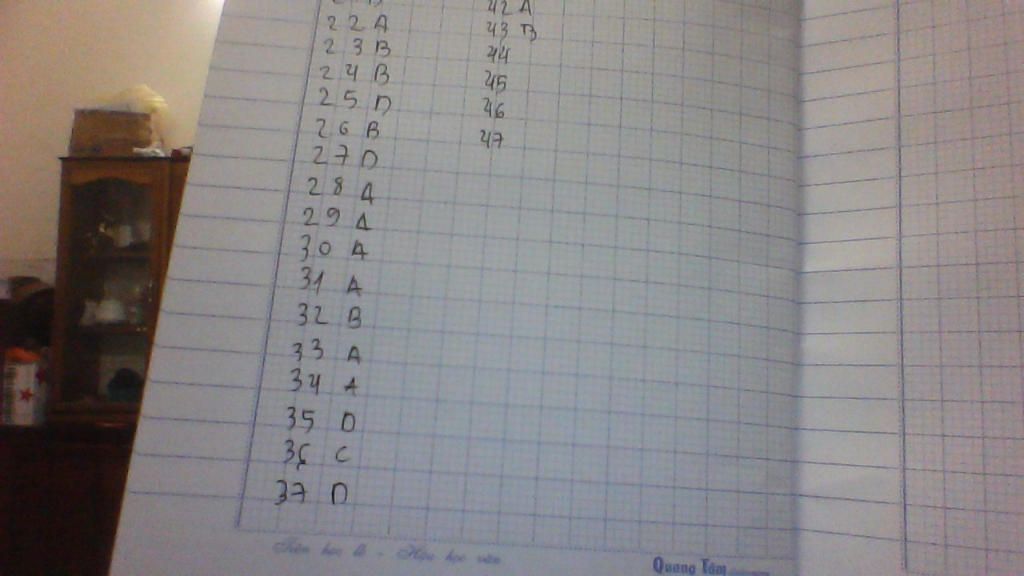 22 A
23 B
24 B
25 D
26 B
27 D
28 A
29 A
30 A
31 A
32 B
33 A
34 A
35 D
36 C
37 D
42 A
43 B
44
45
46
47
Tiên học lễ - Hậu học văn
Quang Tâm